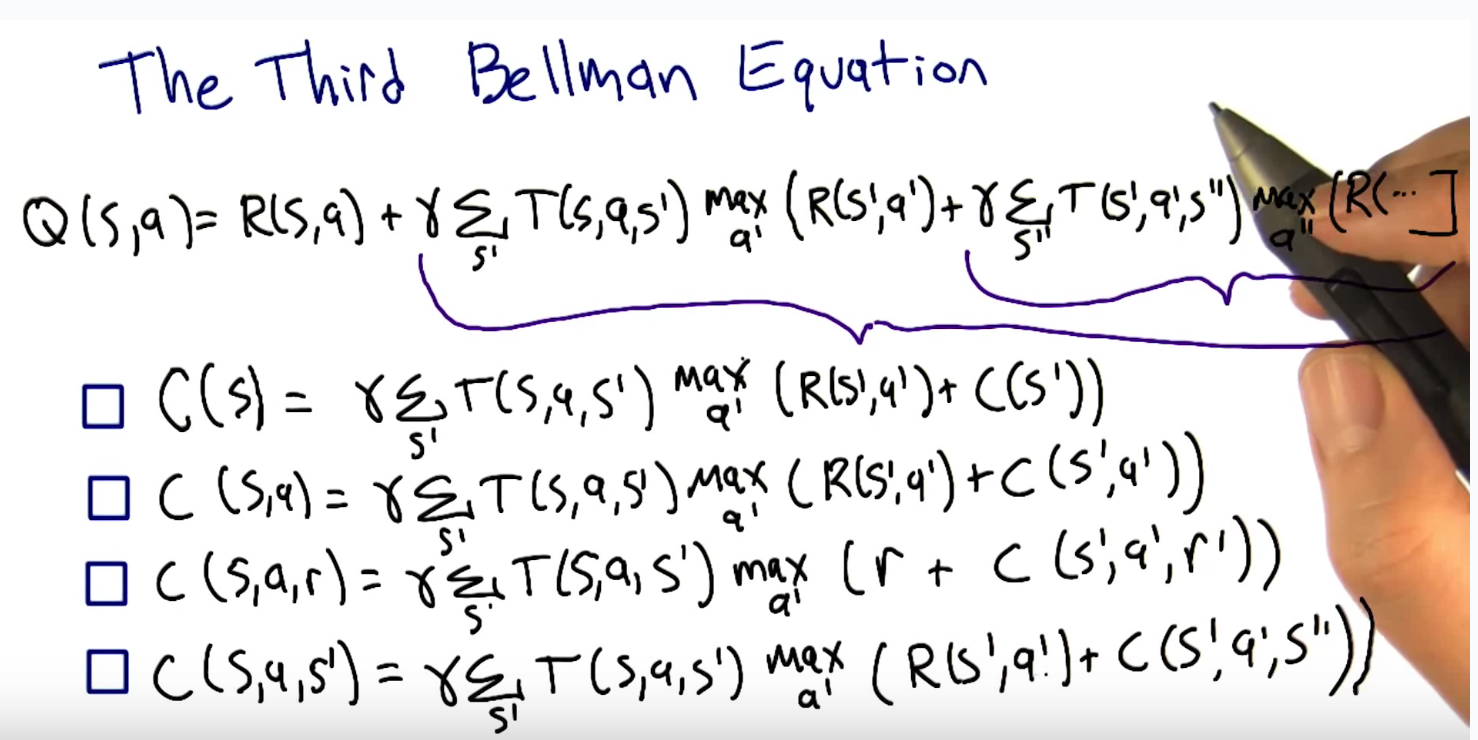 The Third Bellman Equation
Q(s,a)= R(s,a) + γ Σ_s' T(s,a,s') max_a' (R(s',a')+ γ Σ_s'' T(s',a',s'') max_a'' (R(...]
□ C(s) = γ Σ_s' T(s,a,s') max_a' (R(s',a')+ C(s'))
□ C(s,a) = γ Σ_s' T(s,a,s') max_a' (R(s',a')+C(s',a'))
□ C(s,a,r) = γ Σ_s' T(s,a,s') max_a' (r + C(s',a',r'))
□ C(s,a,s') = γ Σ_s' T(s,a,s') max_a' (R(s',a')+ C(s',a',s''))